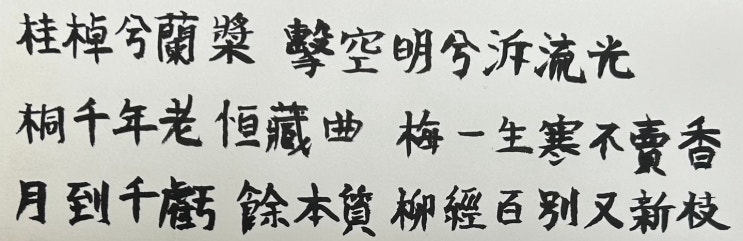 桂棹兮蘭槳 擊空明兮泝流光
桐千年老恒藏曲 梅一生寒不賣香
月到千虧餘本質 柳經百別又新枝